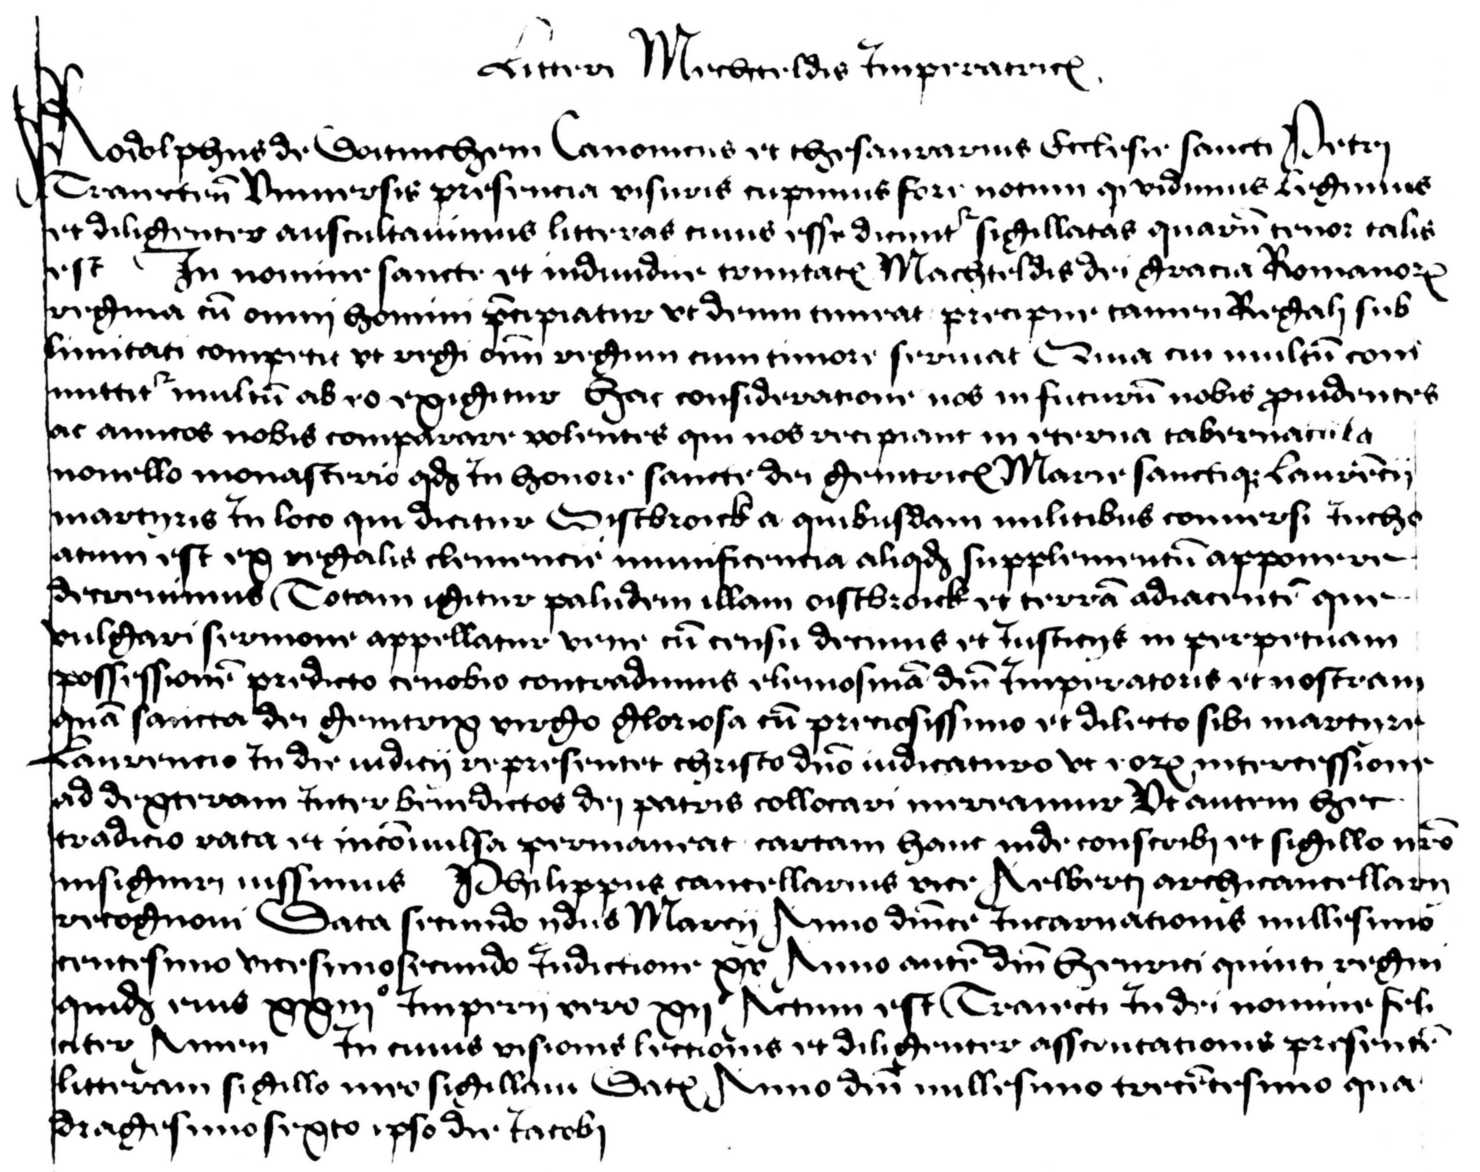 Littera Mechteldis Imperatricis
Rodolphus de Doitinchem Canonicus et thesaurarius Ecclesie sancti Petri
Traiecten̄ Vniuersis presencia visuris cupimus fore notum q vidimus legimus
et diligenter auscultauimus litteras cuius esse dicunt sigillatas quarū tenor talis
est In nomine sancte et indiuidue trinitatis Machteldis dei gracia Romanorum
regina cū omni homini p̄cipiatur vt deum timeat precipue tamen Regali sub
limitati competit vt regi om̄ regum cum timore seruiat Quia cui multū com
mittitr multū ab eo exigitur Hac consideratione nos in futurū nobis prouidentes
ac amicos nobis comparare volentes qui nos recipiant in eterna tabernacula
nouello monasterio qd In honore sancte dei genitricis Marie sanctiq Laurēcij
martyris In loco qui dicitur Oistbroick a quibusdam militibus conuersi Incho
atum est ex regalis clemencie munificencia aliqd supplementū apponere
decreuimus Totam igitur paludem illam oistbroick et terrā adiacentē que
vulgari sermone appellatur vene cū censu decimis et Iusticijs in perpetuam
possessionē predicto cenobio contradimus elemosinā dn̄i Imperatoris et nostram
quā sancta dei genitrix virgo gloriosa cū preciosissimo et dilecto sibi martyre
Laurencio In die iudicij representet christo dn̄o iudicaturo vt eorum intercessione
ad dexteram Inter benedictos dei patris collocari mereamur Vt autem hec
tradicio rata et incōuulsa permaneat cartam hanc inde conscribi et sigillo nr̄o
insigniri iussimus Philippus cancellarius vice Aelberti archicancellarij
recognoui Data secundo ydus Marcij Anno dn̄ice Incarnationis millesimo
centesimo vicesimosecundo Indictione xv Anno autē dn̄i Henrici quinti regni
quidē eius xxiiio Imperij vero xii Actum est Traiecti In dei nomine feli
citer Amen In cuius visionis lectionis et diligenter asscultationis presentē
litteram sigillo meo sigillaui Datum Anno dn̄i millesimo trecētesimo qua
dragesimosexto ipso die Iacobi